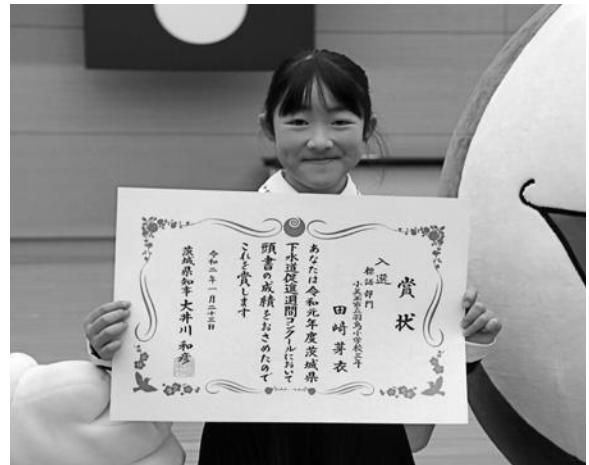 賞状
入選
標語部門
小美玉市立羽鳥小学校三年
田﨑芽衣
あなたは令和元年度茨城県
下水道促進週間コンクールにおいて
頭書の成績をおさめたので
これを賞します
令和二年一月二十三日
茨城県知事 大井川和彦